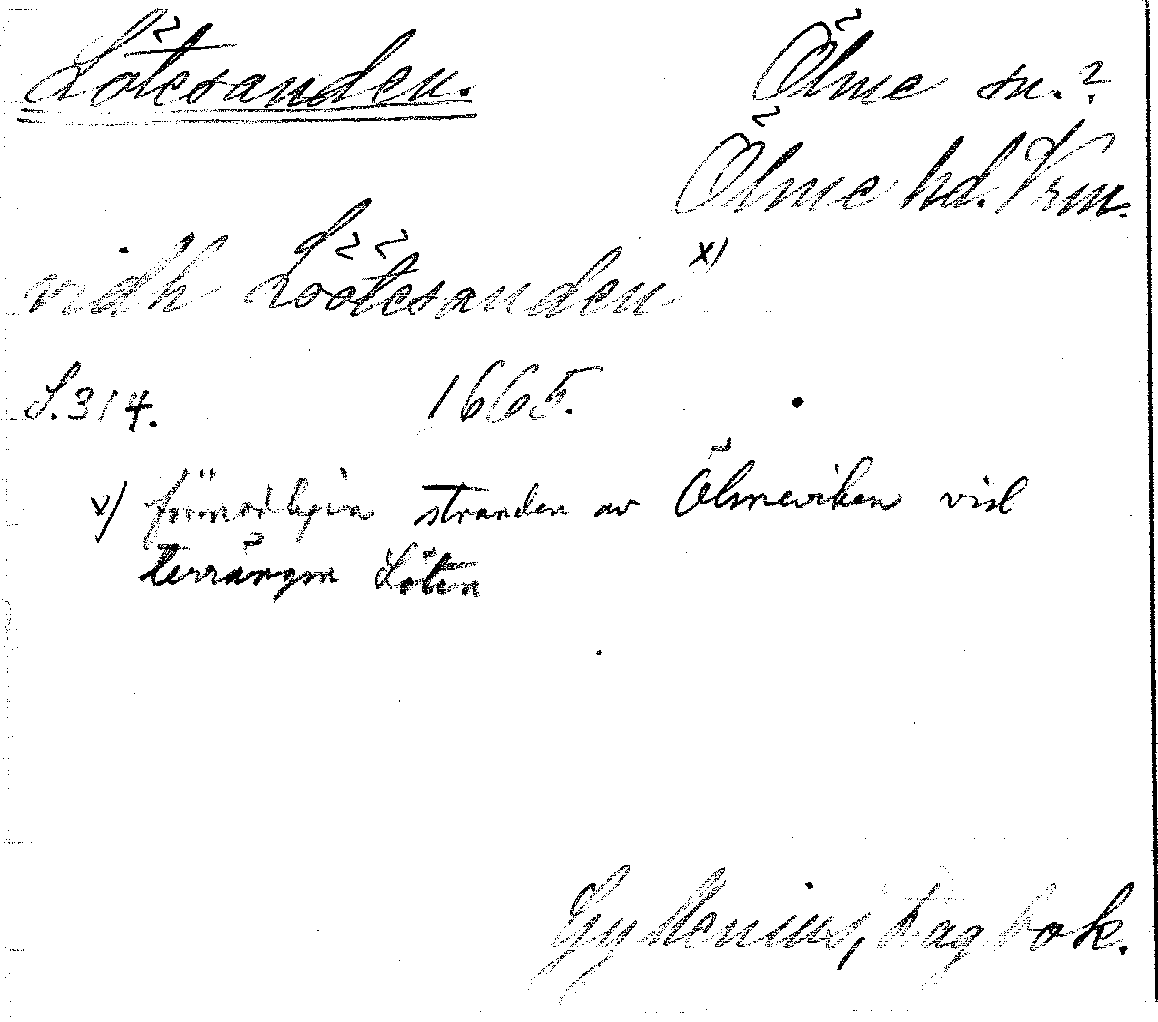 Lötesanden. Ölme sn.?
Ölme hd. Vrm.
vidh Löötesanden" x)
S. 314. 1665.
x) förmodligen stranden av Ölmeviken vid
terrängen Löten
Gyllenius, Dagbok.